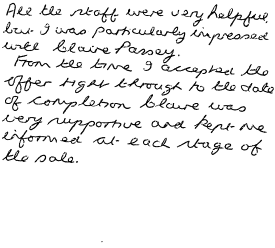 All the staff were very helpful
but I was particularly impressed
with Claire Passey.
From the time I accepted the
offer right through to the date
of completion Claire was
very supportive and kept me
informed at each stage of
the sale.